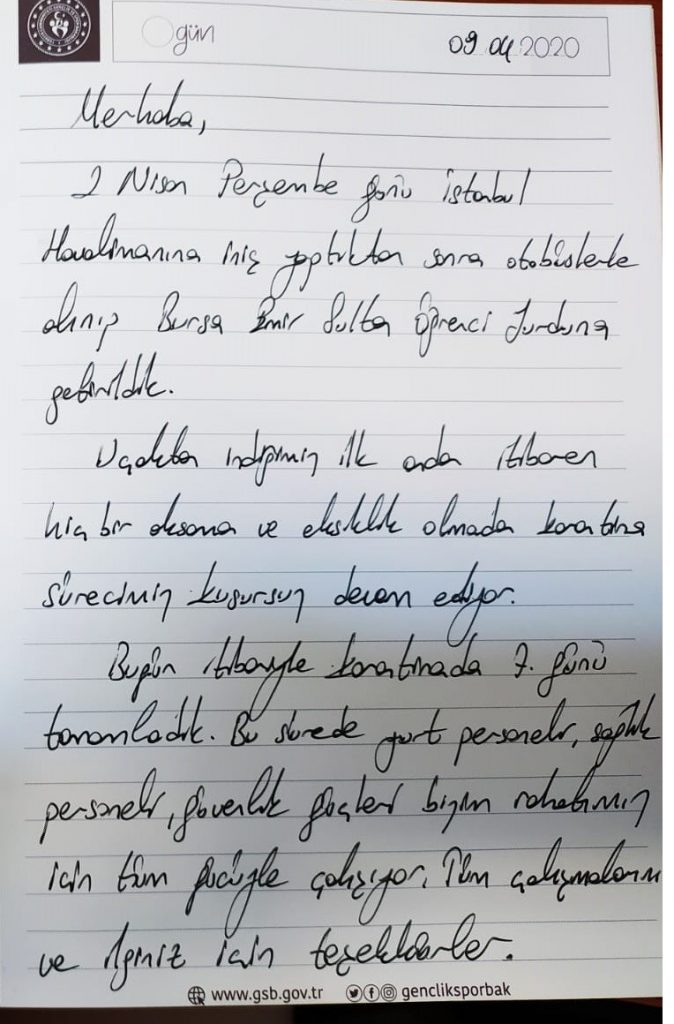 gün
09 04 2020
Merhaba,
2 Nisan Perşembe günü İstanbul
Havalimanına iniş yaptıktan sonra otobüslerle
alınıp Bursa Emir Sultan Öğrenci Yurduna
getirildik.
Uçaktan indiğimiz ilk andan itibaren
hiç bir aksama ve eksiklik olmadan karantina
sürecimiz kusursuz devam ediyor.
Bugün itibariyle karantinada 7. günü
tamamladık. Bu sürede yurt personeli, sağlık
personeli, güvenlik güçleri bizim rahatımız
için tüm gücüyle çalışıyor. Tüm çalışmalarını
ve ilginiz için teşekkürler.
www.gsb.gov.tr gencliksporbak